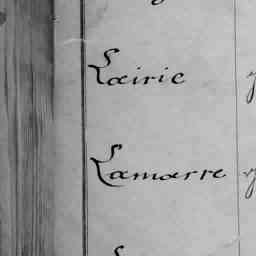 Lairie
Lamarre